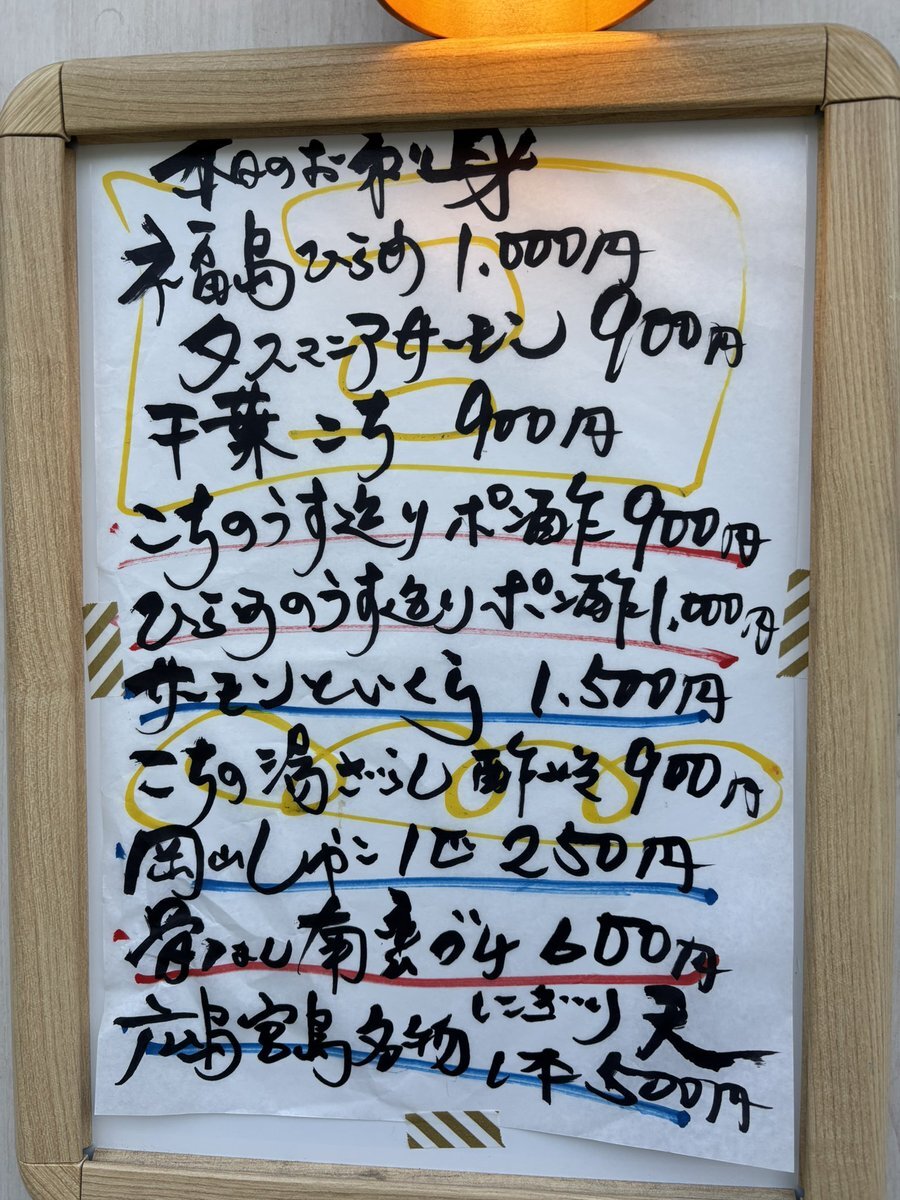 本日のお刺身
福島ひらめ 1.000円
タスマニアサーモン 900円
千葉こち 900円
こちのうす造りポン酢 900円
ひらめのうす造りポン酢 1.000円
サーモンといくら 1.500円
こちの湯ざらし酢みそ 900円
岡山しゃこ 1匹 250円
骨なし南蛮づけ 600円
広島宮島名物 にぎり天
1本 500円